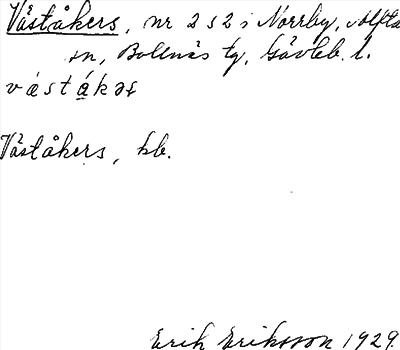 Väståkers, nr 2 s 2 i Norrby, Alfta
sn, Bollnäs tg, Gävleb. l.
västákəs
Väståkers, kb.
Erik Eriksson 1929.